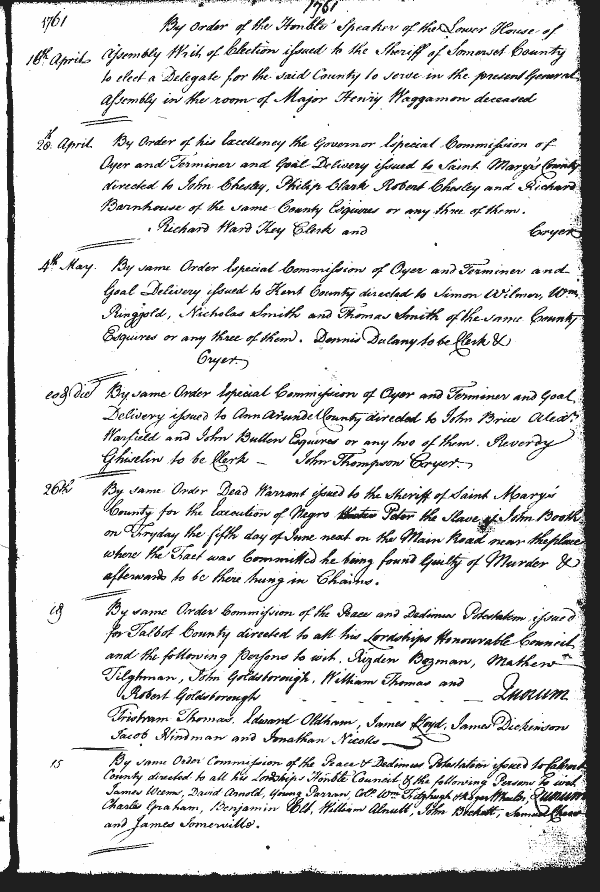 1761
1761 By Order of the Honble Speaker of the Lower House of
16th April Assembly Writ of Election issued to the Sheriff of Somerset County
to elect a Delegate for the said County to serve in the present General
Assembly in the room of Major Henry Waggaman deceased
28th April By Order of his Excellency the Governor Especial Commission of
Oyer and Terminer and Goal Delivery issued to Saint Mary's County
directed to John Chesley, Philip Clark Robert Chesley and Richard
Barnhouse of the same County Esquires or any three of them.
Richard Ward Key Clerk and Cryer
4th May. By same Order Especial Commission of Oyer and Terminer and
Goal Delivery issued to Kent County directed to Simon Wilmer, Wm
Ringgold, Nicholas Smith and Thomas Smith of the same County
Esquires or any three of them. Dennis Dulany to be Clerk &
Cryer
eod die By same Order Especial Commission of Oyer and Terminer and Goal
Delivery issued to AnnArundel County directed to John Brice Alexr
Warfield and John Bullen Esquires or any two of them. Reverdy
Ghiselin to be Clerk — John Thompson Cryer.
26th By same Order Dead Warrant issued to the Sheriff of Saint Mary's
County for the Execution of Negro Peter the Slave of John Booth
on Fryday the fifth day of June next on the Main Road near the place
where the Fact was Committed he being found Guilty of Murder &
afterwards to be there hung in Chains.
By same Order Commission of the Peace and Dedimus Potestatem issued
for Talbot County directed to all his Lordships Honourable Council
and the following persons to wit, Rizden Bozman, Mathew
Tilghman, John Goldsborough, William Thomas and
Robert Goldsborough - - - - Quorum
Tristram Thomas, Edward Oldham, James Lloyd, James Dickinson
Jacob Hindman and Jonathan Nicolls
15 By same Order Commission of the Peace & Dedimus Potestatem issued to Calvert
County directed to all his Lordships Honble Council & the following Persons to wit
James Weems, David Arnold, Young Parran, Coll Wm Fitzhugh & Roger Wheeler, Quorum
Charles Graham, Benjamin Elt, William Alnutt, John Beckett, Samuel
and James Somervill.